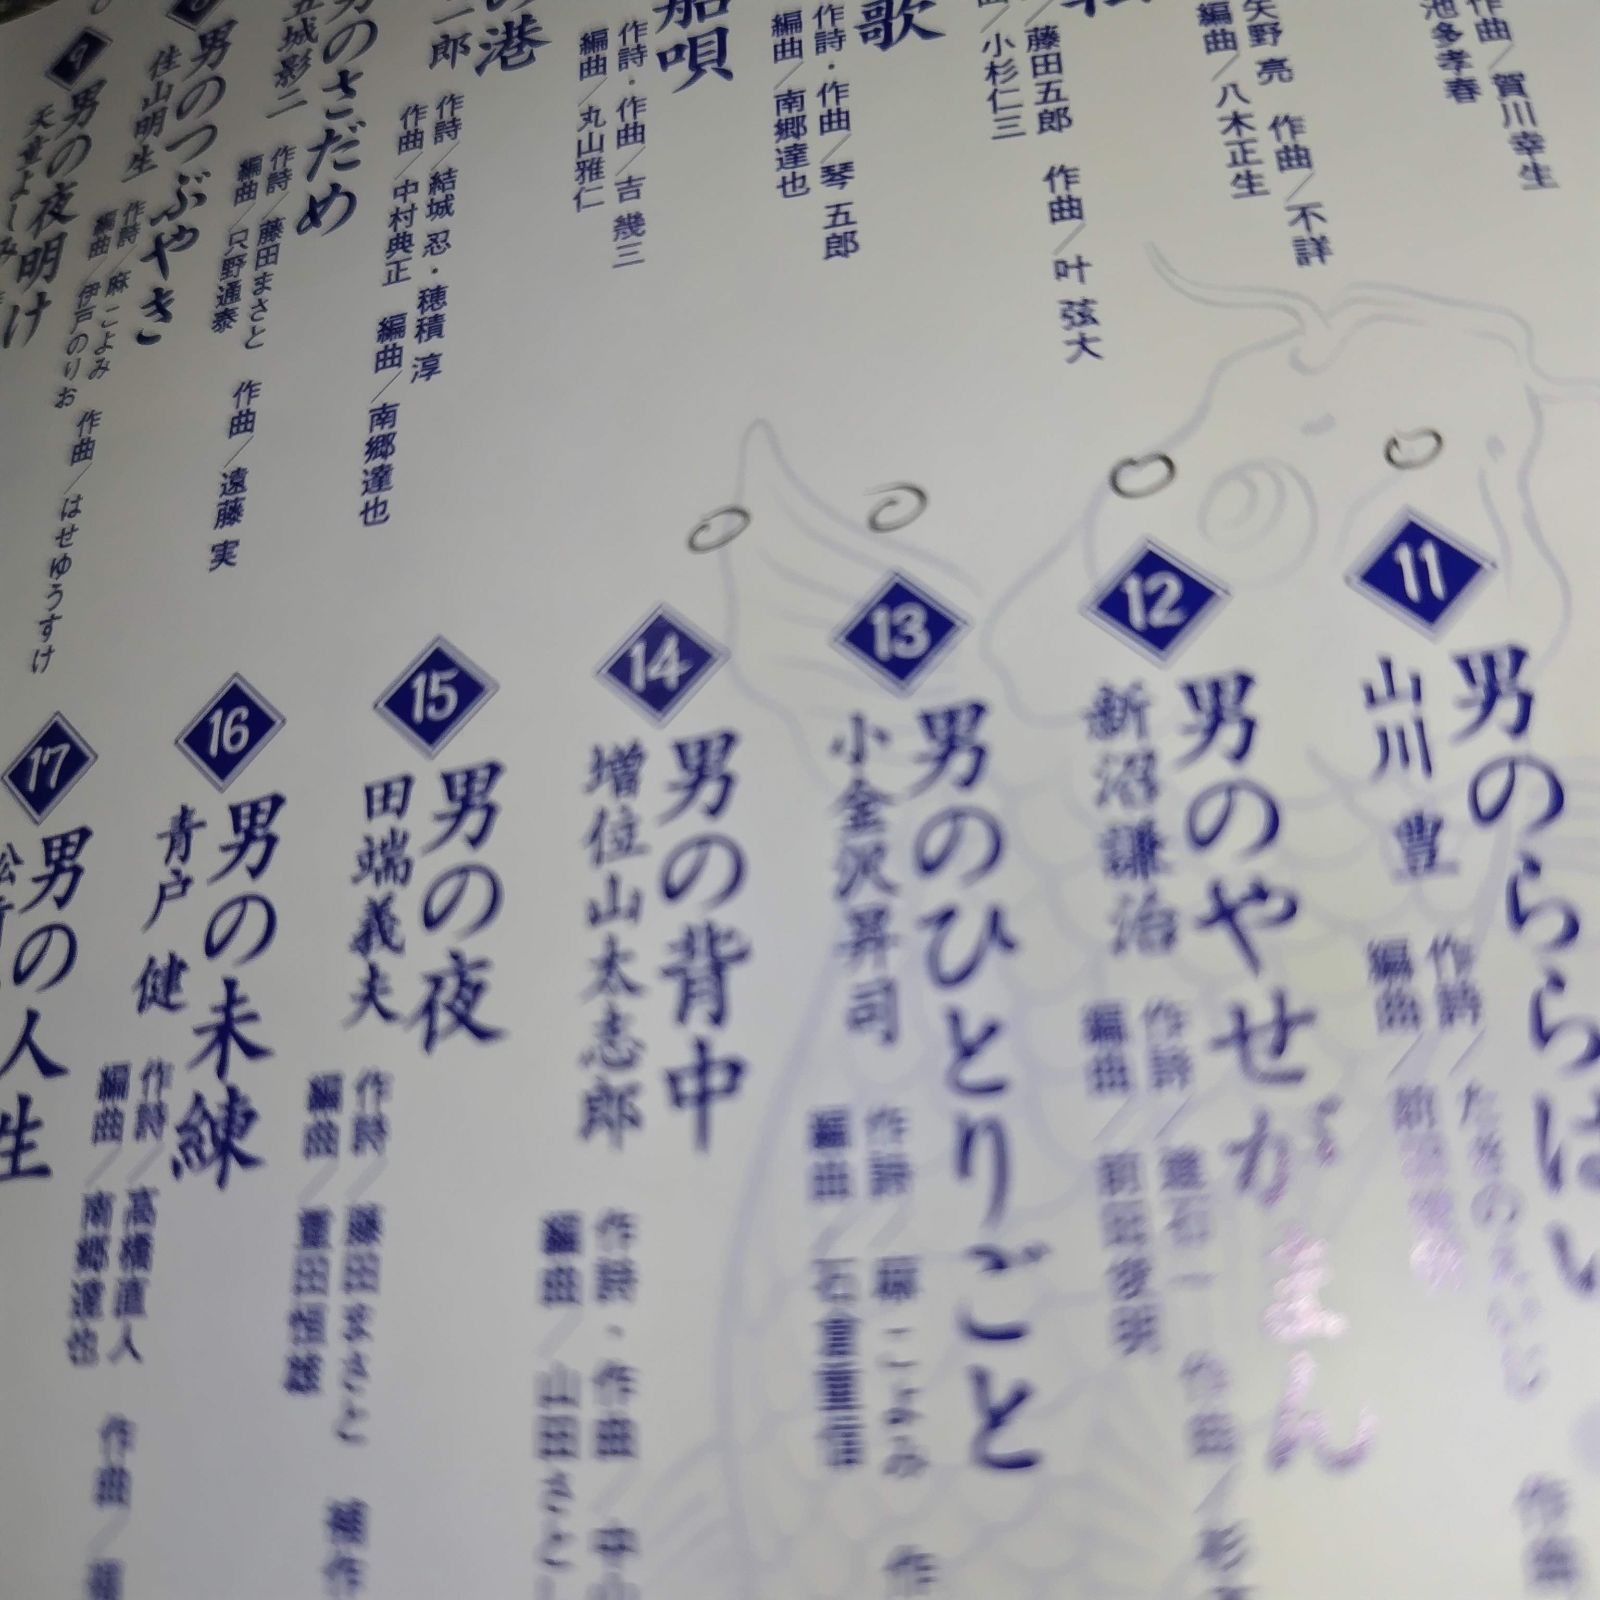 作曲／賀川幸生
池多孝春
矢野 亮 作曲／不詳
編曲／八木正生
／藤田五郎 作曲／叶 弦大
／小杉仁三
歌
作詩・作曲／琴 五郎
編曲／南郷達也
船唄
作詩・作曲／吉 幾三
編曲／丸山雅仁
港
二郎
作詩／結城 忍・穂積 淳
作曲／中村典正 編曲／南郷達也
男のさだめ
五城影二
作詩／藤田まさと 作曲／遠藤 実
編曲／只野通泰
男のつぶやき
佳山明生
作詩／麻 こよみ 作曲／はせゆうすけ
編曲／伊戸のりお
9 男の夜明け
天童よしみ
11 男のららばい
山川 豊
作詩／たきのえいじ 作曲
編曲／
12 男のやせがまん
新沼謙治
作詩／ 作曲／杉
編曲／前田俊明
13 男のひとりごと
小金沢昇司
作詩／麻 こよみ 作
編曲／石倉重信
14 男の背中
増位山太志郎
作詩・作曲／中山
編曲／山田さとし
15 男の夜
田端義夫
作詩／藤田まさと 補作
編曲／重田恒雄
16 男の未練
青戸 健
作詩／高橋直人 作曲／
編曲／南郷達也
17 男の人生